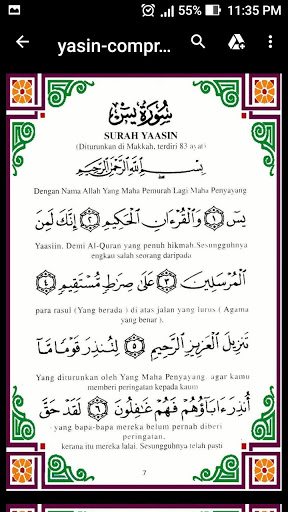 55% 11:35 PM
yasin-compr...
سُورَةُ يسٓ
SURAH YAASIN
(Diturunkan di Makkah, terdiri 83 ayat)
بِسْمِ اللَّهِ الرَّحْمَٰنِ الرَّحِيمِ
Dengan Nama Allah Yang Maha Pemurah Lagi Maha Penyayang
يسٓ ﴿١﴾ وَالْقُرْءَانِ الْحَكِيمِ ﴿٢﴾ إِنَّكَ لَمِنَ
Yaasiin. Demi Al-Quran yang penuh hikmah.Sesungguhnya
engkau salah seorang daripada
الْمُرْسَلِينَ ﴿٣﴾ عَلَىٰ صِرَٰطٍ مُّسْتَقِيمٍ ﴿٤﴾
para rasul (Yang berada ) di atas jalan yang lurus ( Agama
yang benar ).
تَنزِيلَ الْعَزِيزِ الرَّحِيمِ ﴿٥﴾ لِتُنذِرَ قَوْمًا مَّا
Yang diturunkan oleh Yang Maha Penyayang. agar kamu
memberi peringatan kepada kaum
أُنذِرَ ءَابَآؤُهُمْ فَهُمْ غَٰفِلُونَ ﴿٦﴾ لَقَدْ حَقَّ
yang bapa-bapa mereka belum pernah diberi
peringatan,
kerana itu mereka lalai. Sesungguhnya telah pasti
7